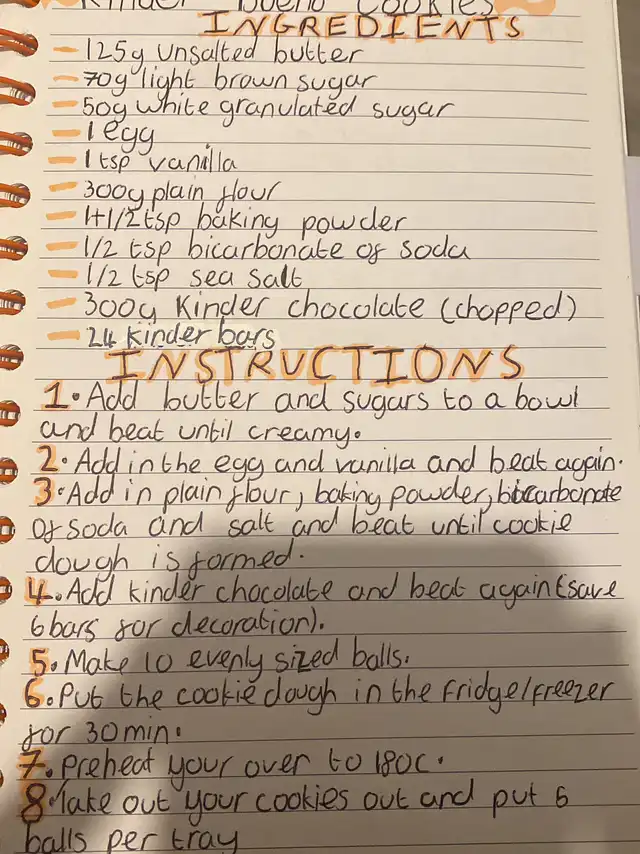 Kinder Bueno Cookies
INGREDIENTS
- 125g unsalted butter
- 70g light brown sugar
- 50g white granulated sugar
- 1 egg
- 1 tsp vanilla
- 300g plain flour
- 1+1/2 tsp baking powder
- 1/2 tsp bicarbonate of soda
- 1/2 tsp sea salt
- 300g Kinder chocolate (chopped)
- 24 kinder bars
INSTRUCTIONS
1. Add butter and sugars to a bowl
and beat until creamy.
2. Add in the egg and vanilla and beat again.
3. Add in plain flour, baking powder, bicarbonate
of soda and salt and beat until cookie
dough is formed.
4. Add kinder chocolate and beat again (save
6 bars for decoration).
5. Make 10 evenly sized balls.
6. Put the cookie dough in the fridge/freezer
for 30 min.
7. Preheat your over to 180C.
8 Make out your cookies out and put 6
balls per tray